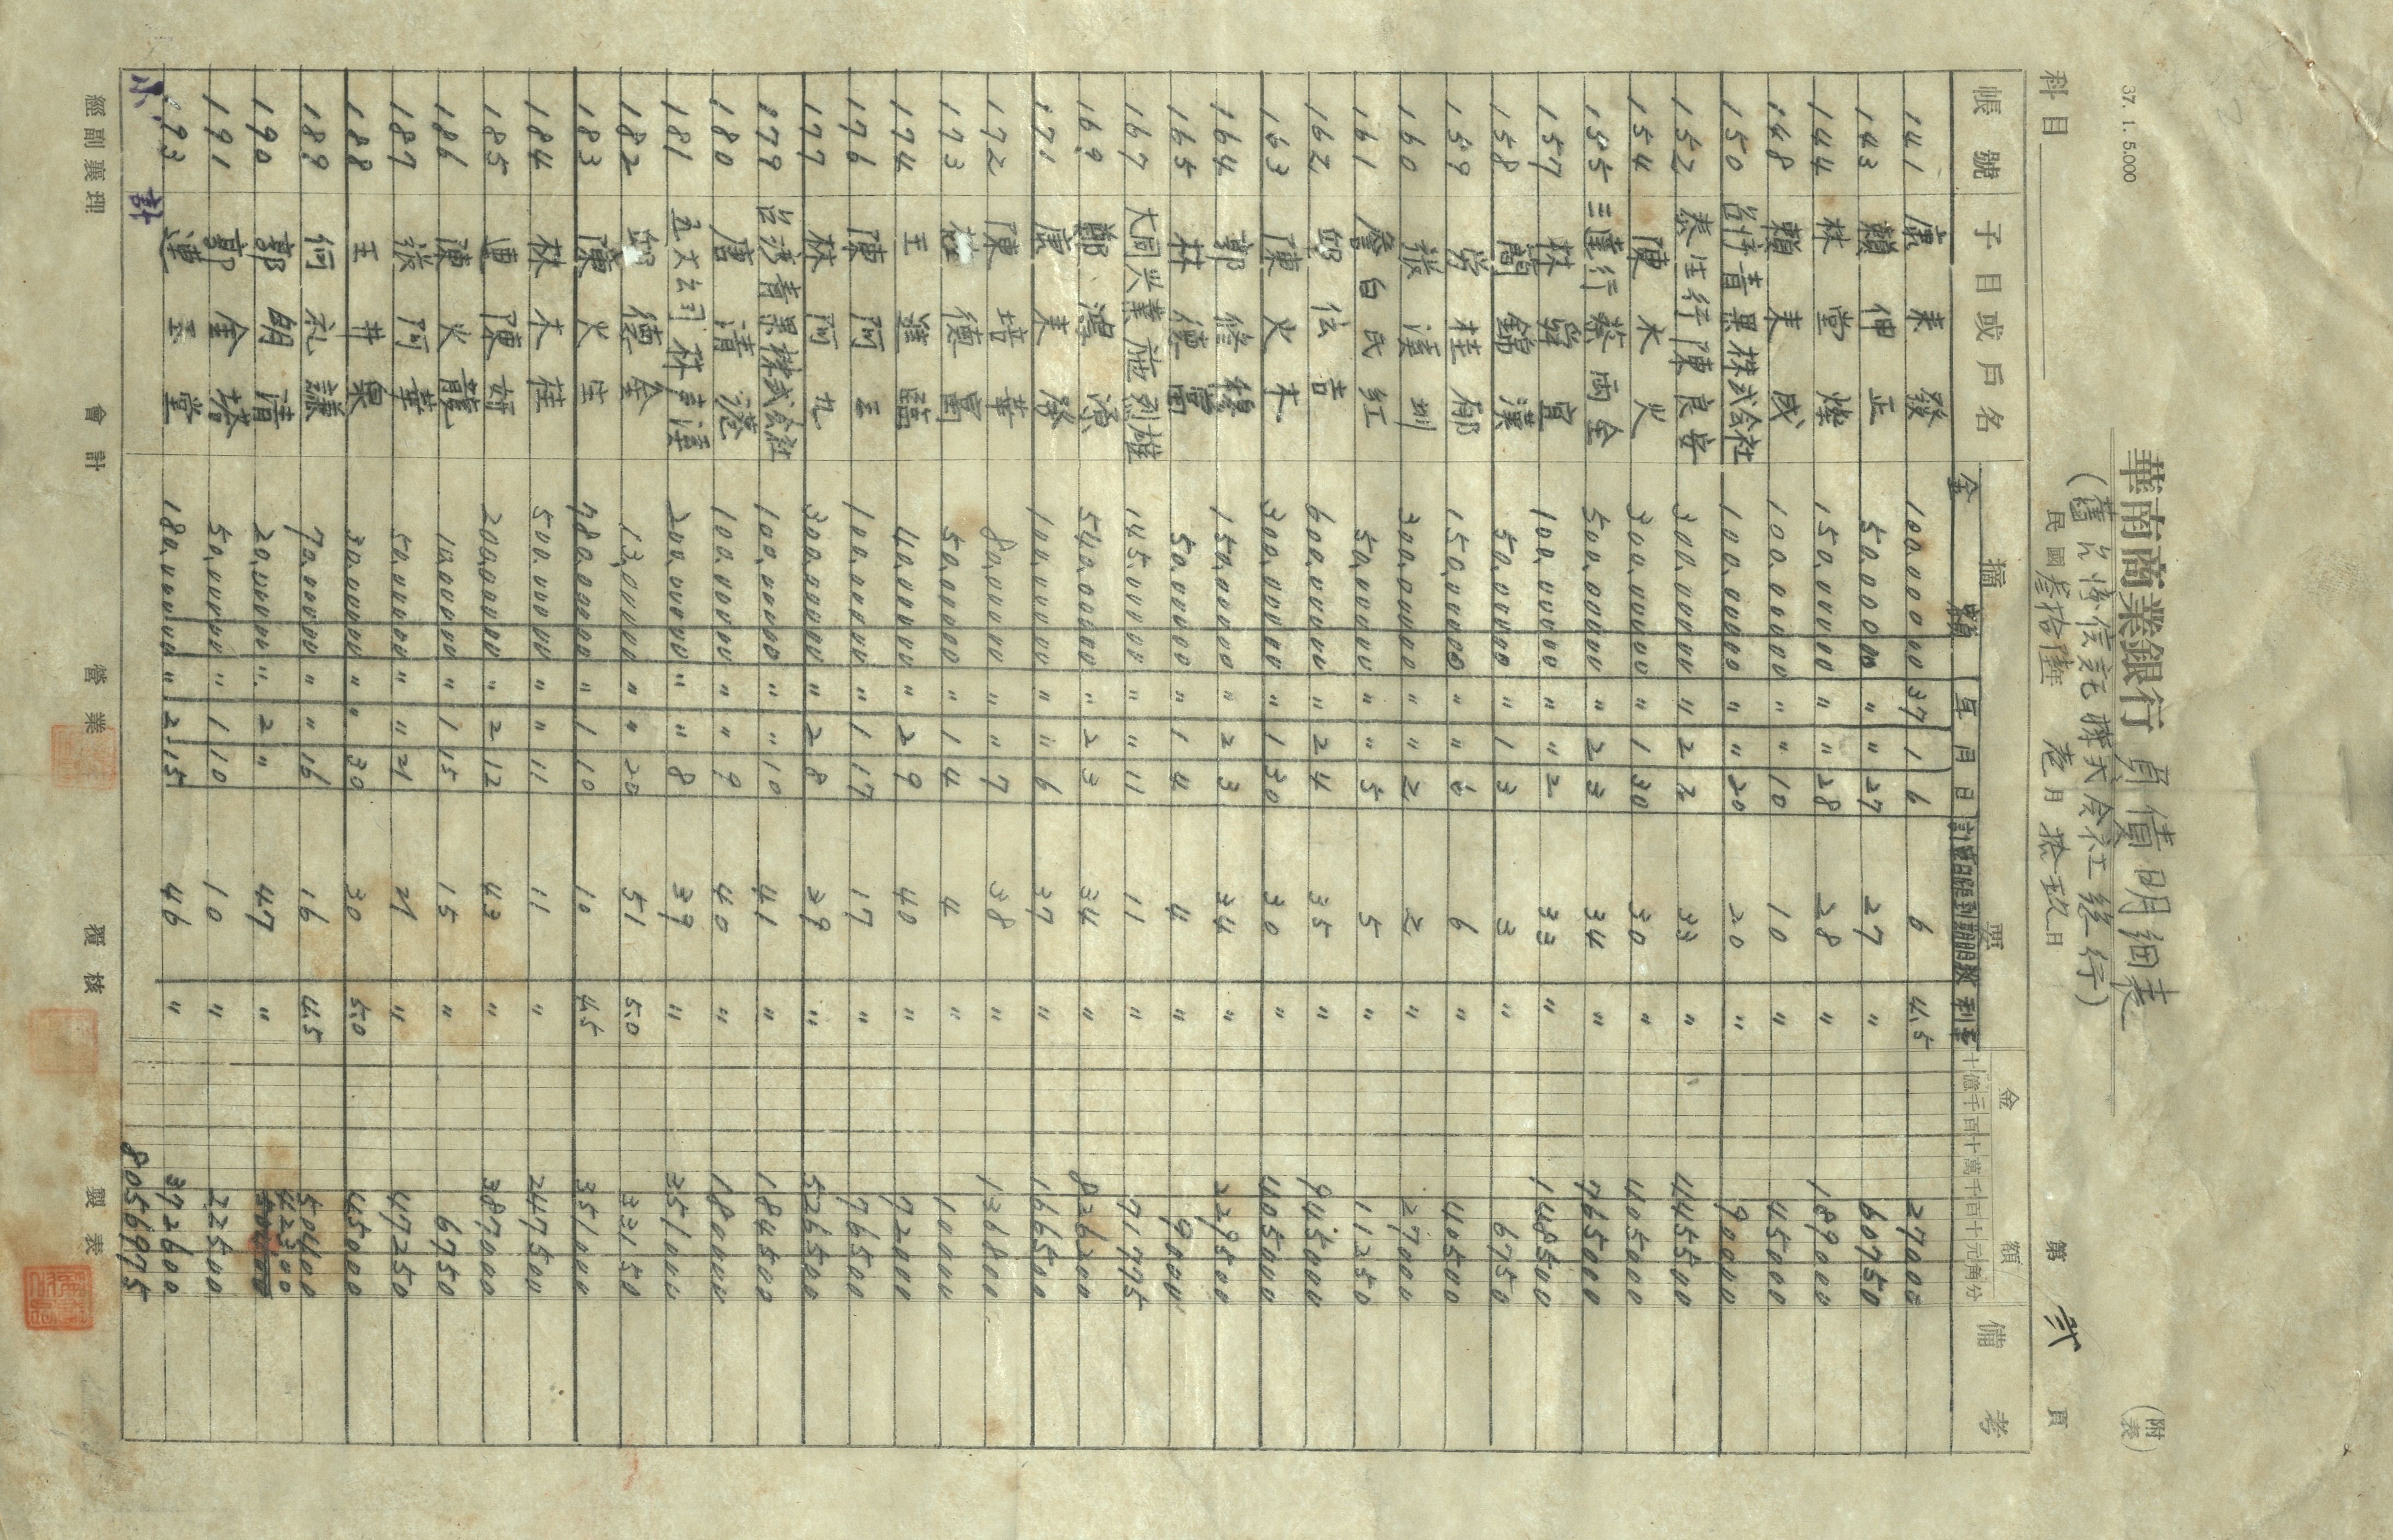 37. 1. 5.000
華南商業銀行 負債明細表
(附表)
(舊台灣信託株式会社繼行)
科目
民國參拾陸年 老月 拾玖日
第 弐 頁
帳號 子目或戶名 摘要 金額 備考
金額 年 月 日 計算日起到期日數 利率 十億千百十萬千百十元角分
141 康来發 100,000 00 37 1 6 6 4.5 27000
143 賴伸正 50,000 00 " " 27 27 " 60750
144 林堂燦 150,000 00 " " 28 28 " 189000
148 賴来成 100,000 00 " " 10 10 " 45000
150 台湾青果株式会社 100,000 00 " " 20 20 " 90000
152 泰生行陳良安 300,000 00 " 2 2 33 " 445500
154 陳木火 300,000 00 " 1 30 30 " 405000
155 三蓮行蔡両全 500,000 00 " 2 3 34 " 765000
157 林宜 100,000 00 " " 2 33 " 148500
158 簡錦漢 50,000 00 " 1 3 3 " 6750
159 桂郁 150,000 00 " " 6 6 " 40500
160 張漢圳 300,000 00 " " 2 2 " 27000
161 詹白民紅 50,000 00 " " 5 5 " 11250
162 邱伝吉 600,000 00 " 2 4 35 " 945000
163 陳火木 300,000 00 " 1 30 30 " 405000
164 郭修 150,000 00 " 2 3 34 " 229500
165 林德富 50,000 00 " 1 4 4 " 9000
167 大同兴業施烈雄 145,000 00 " " 11 11 " 71775
169 鄭鴻源 540,000 00 " 2 3 34 " 826200
171 康来發 100,000 00 " " 6 37 " 166500
172 陳培華 80,000 00 " " 7 38 " 136800
173 德富 50,000 00 " 1 4 4 " 10000
174 王 臨 40,000 00 " 2 9 40 " 72000
176 陳阿三 100,000 00 " 1 17 17 " 76500
177 林阿九 300,000 00 " 2 8 39 " 526500
179 台湾青果株式会社 100,000 00 " " 10 41 " 184500
180 唐清港 100,000 00 " " 9 40 " 180000
181 五大公司林声漢 200,000 00 " " 8 39 " 351000
182 邱德金 13,000 00 " " 20 51 5.0 33150
183 陳火生 780,000 00 " 1 10 10 4.5 351000
184 林木桂 500,000 00 " " 11 11 " 247500
185 連陳妍 200,000 00 " 2 12 43 " 387000
186 陳火龍 10,000 00 " 1 15 15 " 6750
187 張阿華 50,000 00 " " 21 21 " 47250
188 王井泉 30,000 00 " " 30 30 5.0 45000
189 何礼謙 70,000 00 " " 16 16 4.5 50400
190 郭朝清 20,000 00 " 2 " 47 " 42300
191 郭金塔 50,000 00 " 1 10 10 " 22500
193 連玉堂 180,000 00 " 2 15 46 " 372600
小計 8056975
經副襄理 會計 營業 覆核 製表